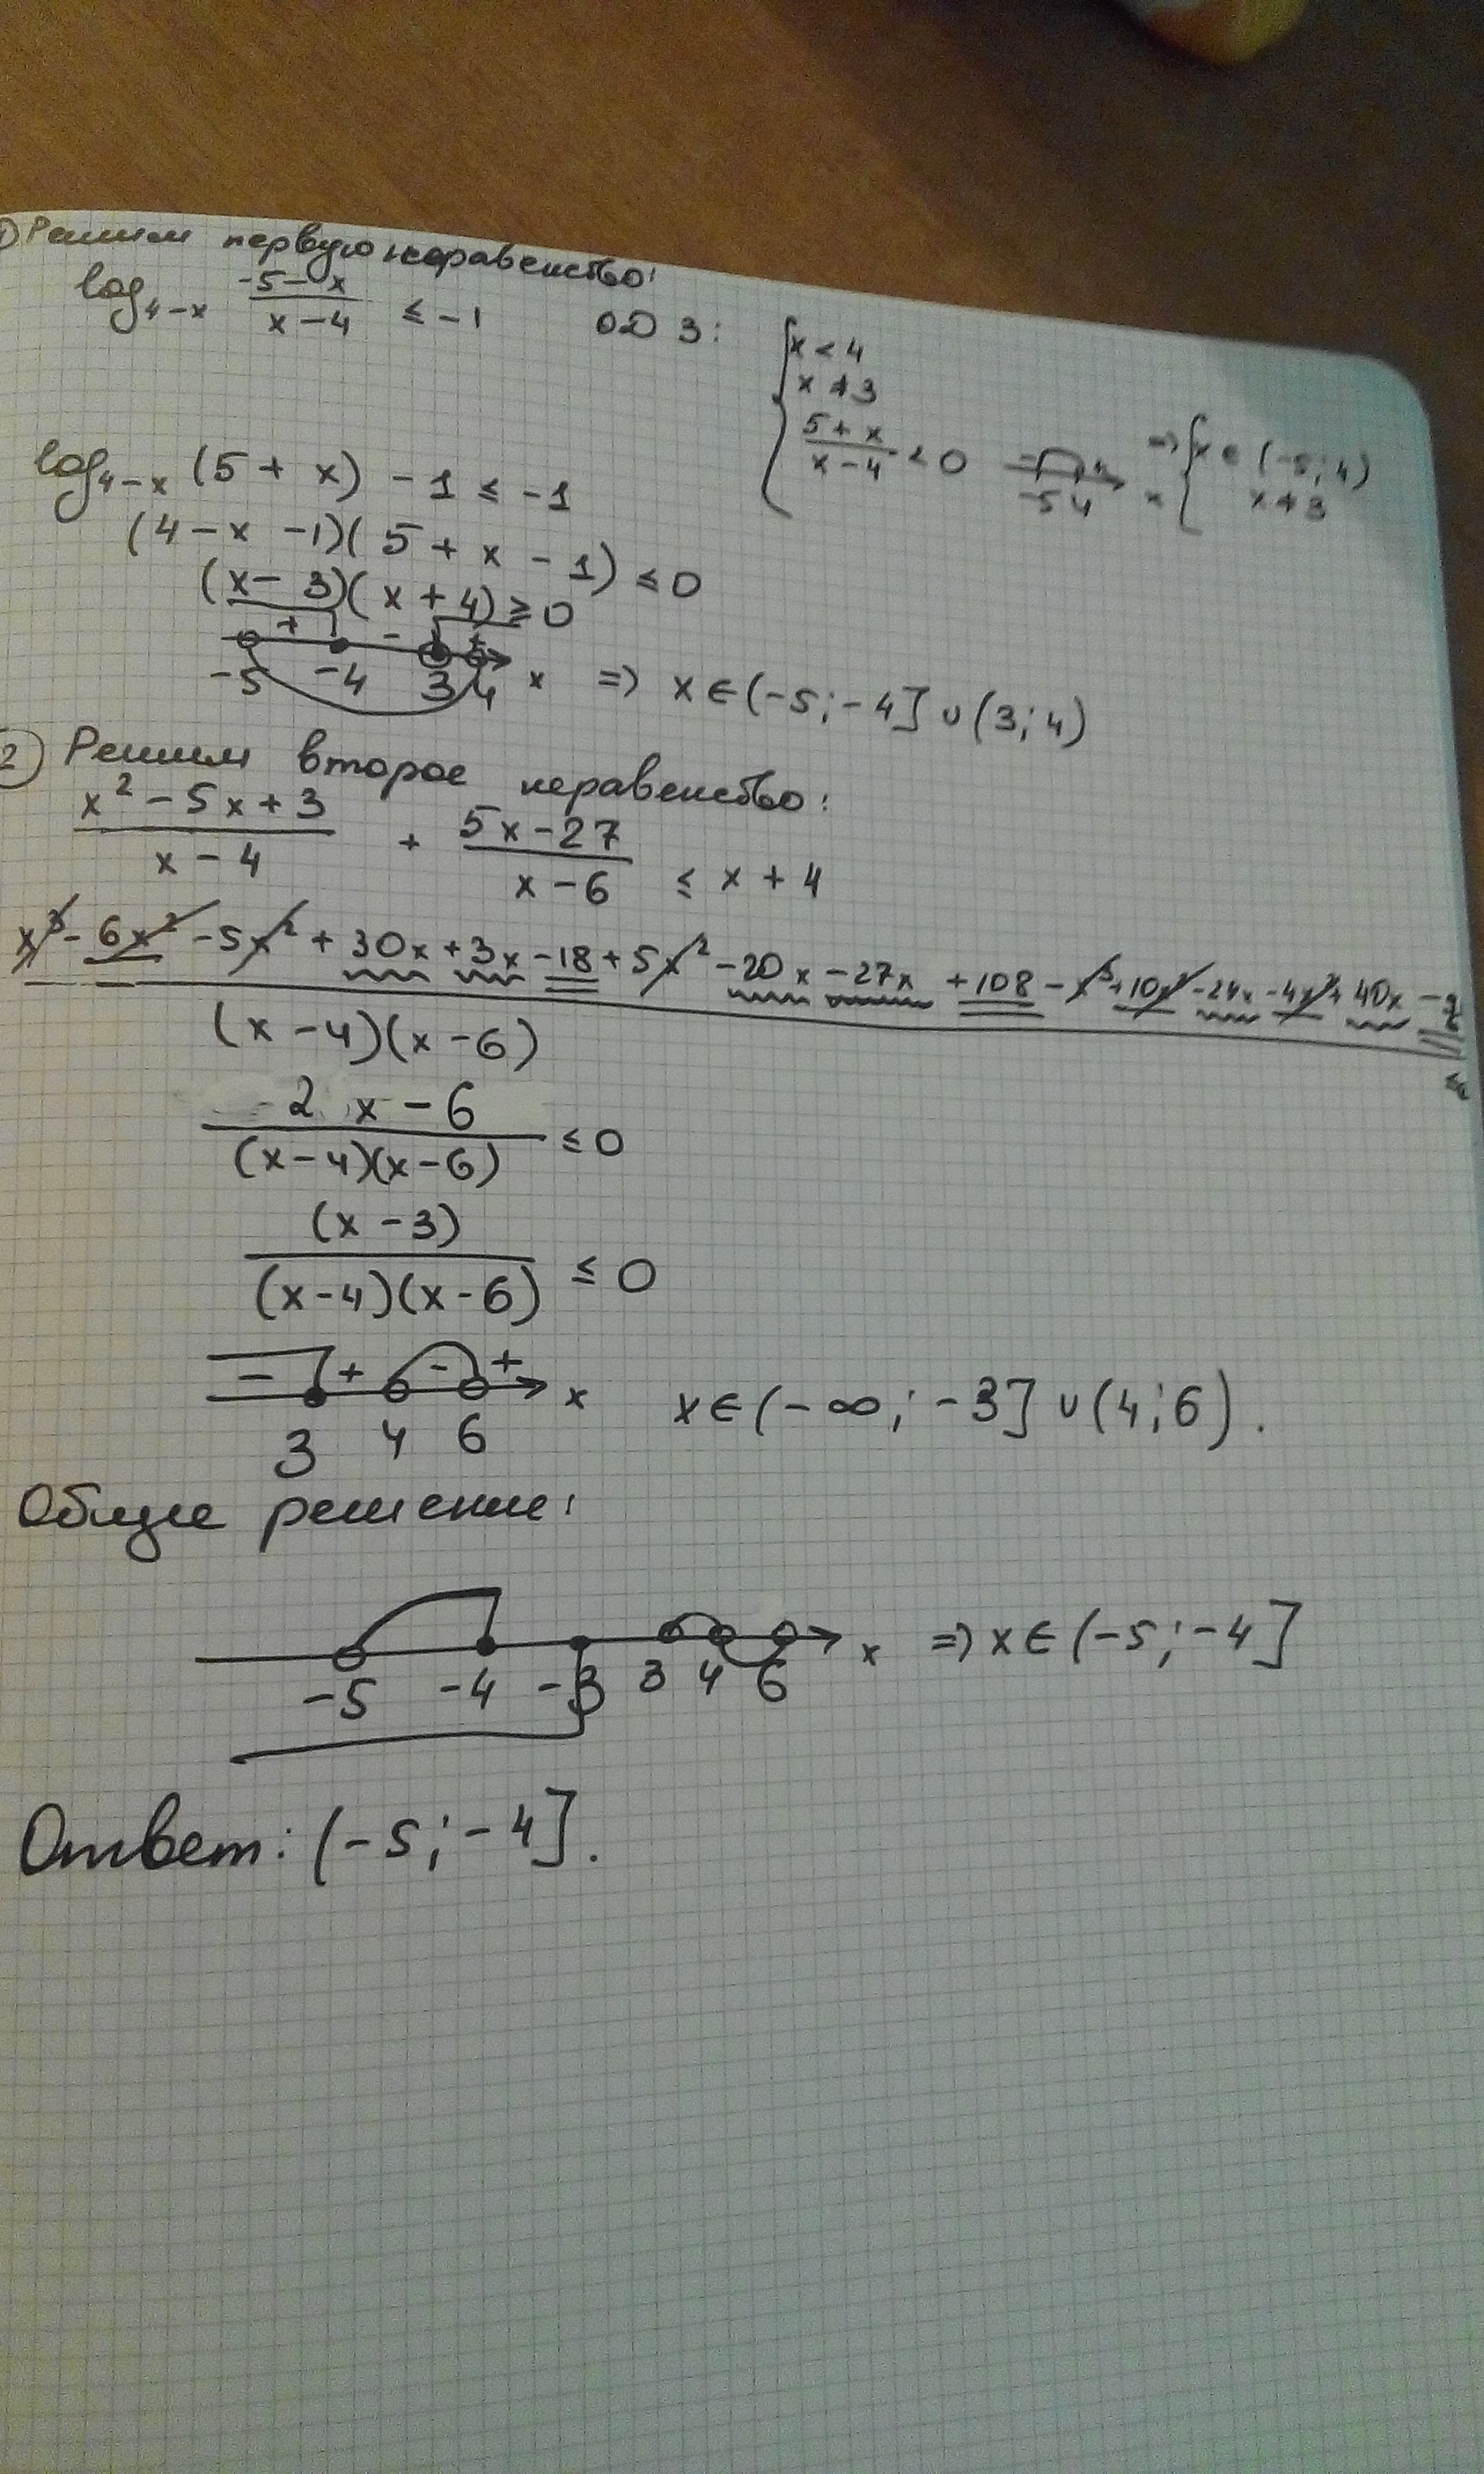 1) Решим первую неравенство:
log₄₋ₓ (-5-x)/(x-4) ≤ -1 ОДЗ: { x < 4
x ≠ 3
(5+x)/(x-4) < 0 -5 4 x ⇒ { x ∈ (-5; 4)
x ≠ 3
log₄₋ₓ (5 + x) - 1 ≤ -1
(4 - x - 1)(5 + x - 1) ≤ 0
(x - 3)(x + 4) ≥ 0
+ - +
-5 -4 3 4 x ⇒ x ∈ (-5; -4] ∪ (3; 4)
2) Решим второе неравенство:
(x² - 5x + 3)/(x - 4) + (5x - 27)/(x - 6) ≤ x + 4
x³ - 6x² - 5x² + 30x + 3x - 18 + 5x² - 20x - 27x + 108 - x³ + 10x² - 24x - 4x² + 40x
(x - 4)(x - 6)
(2x - 6)/((x - 4)(x - 6)) ≤ 0
(x - 3)/((x - 4)(x - 6)) ≤ 0
- + - +
3 4 6 x x ∈ (-∞; -3] ∪ (4; 6).
Общее решение:
-5 -4 -3 3 4 6 x ⇒ x ∈ (-5; -4]
Ответ: (-5; -4].